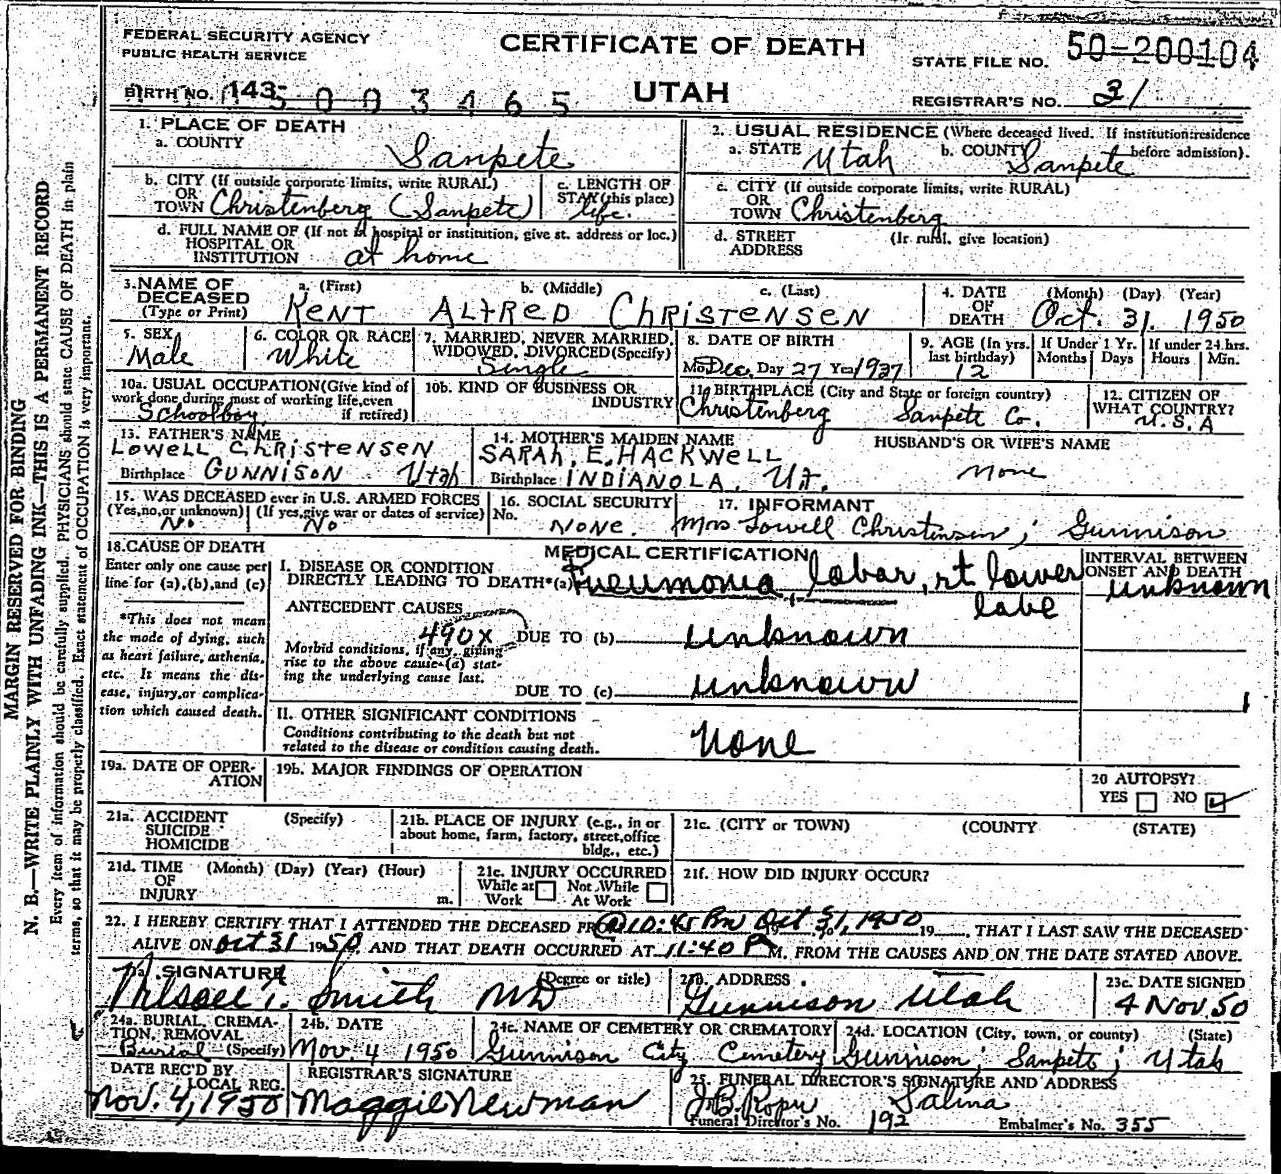 FEDERAL SECURITY AGENCY
PUBLIC HEALTH SERVICE
CERTIFICATE OF DEATH
UTAH
STATE FILE NO. 50-200104
BIRTH NO. 143- 5 0 0 3 4 6 5
REGISTRAR'S NO. 31
MARGIN RESERVED FOR BINDING
N. B.—WRITE PLAINLY WITH UNFADING INK—THIS IS A PERMANENT RECORD
Every item of information should be carefully supplied. PHYSICIANS should state CAUSE OF DEATH in plain
terms, so that it may be properly classified. Exact statement of OCCUPATION is very important.
1. PLACE OF DEATH
a. COUNTY Sanpete
2. USUAL RESIDENCE (Where deceased lived. If institution: residence before admission).
a. STATE Utah b. COUNTY Sanpete
b. CITY (If outside corporate limits, write RURAL)
OR
TOWN Christenberg (Sanpete)
c. LENGTH OF
STAY (this place)
life.
c. CITY (If outside corporate limits, write RURAL)
OR
TOWN Christenberg
d. FULL NAME OF (If not in hospital or institution, give st. address or loc.)
HOSPITAL OR
INSTITUTION at home
d. STREET (If rural, give location)
ADDRESS
3. NAME OF DECEASED
(Type or Print)
a. (First) b. (Middle) c. (Last)
KENT ALFRED CHRISTENSEN
4. DATE OF DEATH (Month) (Day) (Year)
Oct. 31. 1950
5. SEX
Male
6. COLOR OR RACE
White
7. MARRIED, NEVER MARRIED,
WIDOWED, DIVORCED (Specify)
Single
8. DATE OF BIRTH
Mo Dec. Day 27 Year 1937
9. AGE (In yrs. last birthday)
12
If Under 1 Yr.
Months Days
If under 24 hrs.
Hours Min.
10a. USUAL OCCUPATION (Give kind of
work done during most of working life, even
if retired)
Schoolboy
10b. KIND OF BUSINESS OR
INDUSTRY
11. BIRTHPLACE (City and State or foreign country)
Christenberg Sanpete Co.
12. CITIZEN OF
WHAT COUNTRY?
U.S.A
13. FATHER'S NAME
LOWELL CHRISTENSEN
Birthplace GUNNISON Utah
14. MOTHER'S MAIDEN NAME
SARAH. E. HACKWELL
Birthplace INDIANOLA, UT.
HUSBAND'S OR WIFE'S NAME
None
15. WAS DECEASED ever in U.S. ARMED FORCES
(Yes, no, or unknown) (If yes, give war or dates of service)
No No
16. SOCIAL SECURITY
No.
NONE.
17. INFORMANT
Mrs Lowell Christensen; Gunnison
18. CAUSE OF DEATH
Enter only one cause per
line for (a), (b), and (c)
*This does not mean
the mode of dying, such
as heart failure, asthenia,
etc. It means the dis-
ease, injury, or complica-
tion which caused death.
MEDICAL CERTIFICATION
I. DISEASE OR CONDITION
DIRECTLY LEADING TO DEATH* (a) Pneumonia, lobar, rt lower
lobe
INTERVAL BETWEEN
ONSET AND DEATH
unknown
ANTECEDENT CAUSES
490X
Morbid conditions, if any, giving
rise to the above cause (a) stat-
ing the underlying cause last.
DUE TO (b) unknown
DUE TO (c) unknown
II. OTHER SIGNIFICANT CONDITIONS
Conditions contributing to the death but not
related to the disease or condition causing death.
None
19a. DATE OF OPER-
ATION
19b. MAJOR FINDINGS OF OPERATION
20 AUTOPSY?
YES NO
21a. ACCIDENT (Specify)
SUICIDE
HOMICIDE
21b. PLACE OF INJURY (e.g., in or
about home, farm, factory, street, office
bldg., etc.)
21c. (CITY or TOWN) (COUNTY (STATE)
21d. TIME (Month) (Day) (Year) (Hour)
OF
INJURY m.
21e. INJURY OCCURRED
While at Work Not While At Work
21f. HOW DID INJURY OCCUR?
22. I HEREBY CERTIFY THAT I ATTENDED THE DECEASED FROM @ 10:45 Pm Oct 31, 1950 19__, THAT I LAST SAW THE DECEASED
ALIVE ON Oct 31 1950 AND THAT DEATH OCCURRED AT 11:40 P M. FROM THE CAUSES AND ON THE DATE STATED ABOVE.
SIGNATURE (Degree or title)
Smith MD
23b. ADDRESS
Gunnison Utah
23c. DATE SIGNED
4 Nov. 50
24a. BURIAL, CREMA-
TION, REMOVAL
Burial (Specify)
24b. DATE
Nov. 4 1950
24c. NAME OF CEMETERY OR CREMATORY
Gunnison City Cemetery
24d. LOCATION (City, town, or county) (State)
Gunnison; Sanpete; Utah
DATE REC'D BY
LOCAL REG.
Nov. 4, 1950
REGISTRAR'S SIGNATURE
Maggie Newman
25. FUNERAL DIRECTOR'S SIGNATURE AND ADDRESS
Salina
Funeral Director's No. 192 Embalmer's No. 355